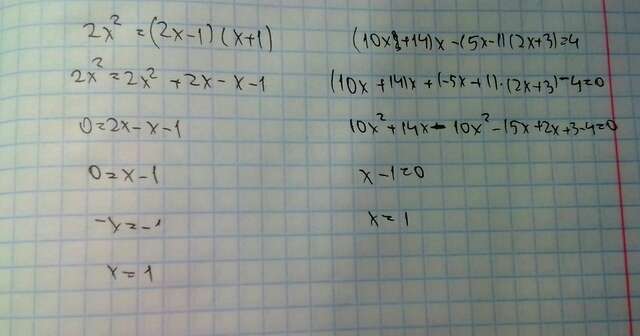 2x² = (2x-1) (x+1)
2x² = 2x² + 2x - x - 1
0 = 2x - x - 1
0 = x - 1
-x = -1
x = 1
(10x+14)x - (5x-1)(2x+3) = 4
(10x+14)x + (-5x+1)·(2x+3) - 4 = 0
10x² + 14x - 10x² - 15x + 2x + 3 - 4 = 0
x - 1 = 0
x = 1